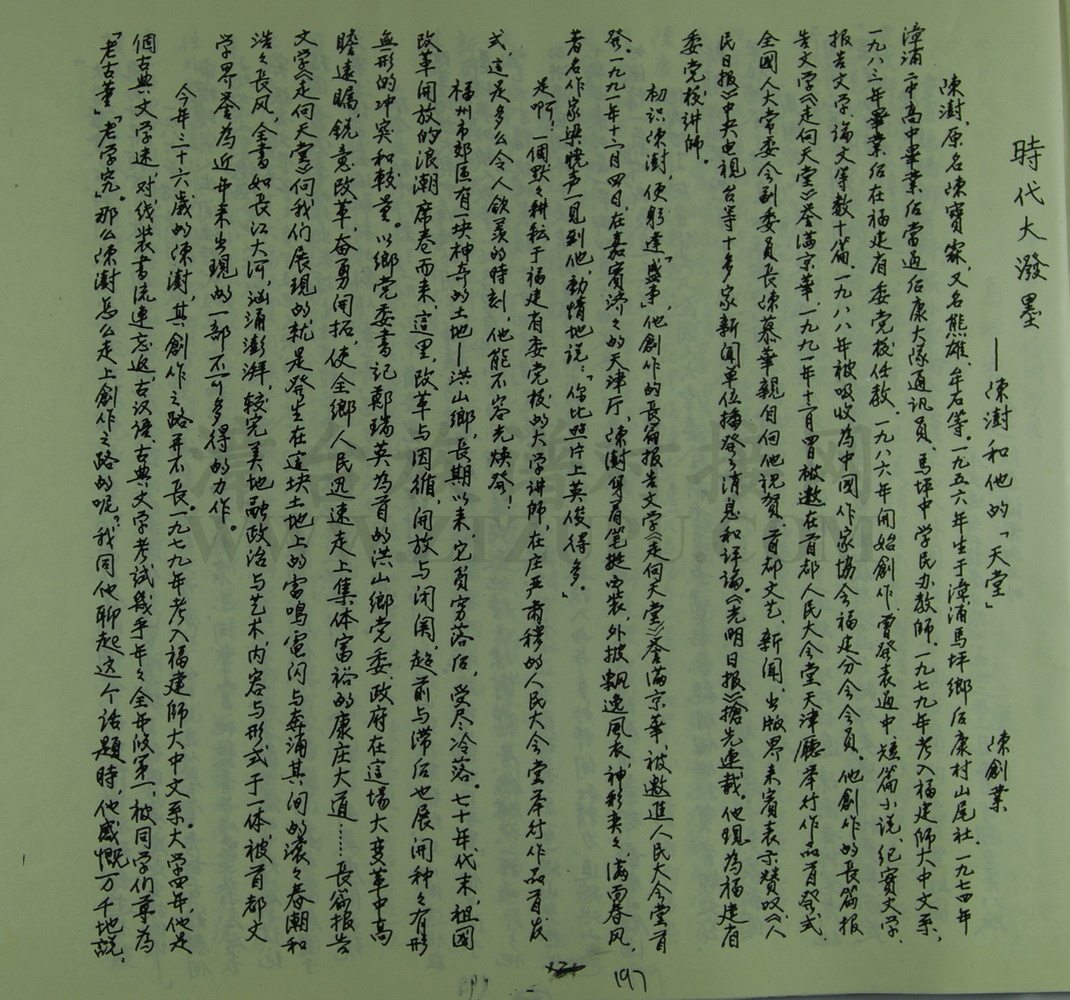 時代大潑墨
——陳澍和他的「天堂」
陳創業
陳澍,原名陳寶霖,又名熊雄、牟石等。一九五六年生于漳浦馬坪鄉后康村山尾社。一九七四年
漳浦一中高中畢業后當過后康大隊通訊員、馬坪中学民办教師。一九七九年考入福建師大中文系,
一九八三年畢業后在福建省委党校任教。一九八六年開始創作,曾發表過中、短篇小说、紀實文学、
报告文学、論文等數十篇。一九八八年被吸收为中國作家協会福建分会会員。他創作的長篇报
告文学《走向天堂》誉滿京華,一九九一年十二月四日被邀在首都人民大会堂天津廳举行作品首發式,
全國人大常委会副委員長陳慕華親自向他祝賀,首都文艺、新闻、出版界来賓表示贊叹。《人
民日报》、《中央电視台等十多家新闻单位播發了消息和评論。《光明日报》搶先連載。他現为福建省
委党校讲師。
初识陳澍,便躬逢「盛事」,他創作的長篇报告文学《走向天堂》誉滿京華,被邀進人民大会堂首
發。一九九一年十二月四日,在嘉賓济々的天津厅,陳澍身着筆挺西装,外披飘逸風衣,神彩奕々,滿面春风,
著名作家梁曉声一見到他,動情地说:「你比照片上英俊得多。」
是啊!一個默々耕耘于福建省委党校的大学讲师,在庄严肃穆的人民大会堂举行作品首发
式,這是多么令人欽羡的時刻,他能不容光焕發!
福州市郊区有一块神奇的土地——洪山鄉,長期以来,它貧穷落后,受尽冷落。七十年代末,祖國
改革開放的浪潮席卷而来,這里,改革与因循,開放与闭阂,超前与滞后也展開种々有形
無形的冲突和較量。以鄉党委書記鄭瑞英为首的洪山鄉党委、政府在這場大变革中高
瞻遠瞩,銳意改革,奋勇開拓,使全鄉人民迅速走上集体富裕的康庄大道……長篇报告
文学《走向天堂》向我们展現的,就是發生在這块土地上的雷鳴電闪与奔涌其间的滚々春潮和
浩々長风,全書如長江大河,汹涌澎湃,較完美地融政治与艺术,内容与形式于一体,被首都文
学界誉为近年来出現的一部不可多得的力作。
今年三十六歲的陳澍,其創作之路并不長。一九七九年考入福建師大中文系。大学四年,他是
個古典文学迷,对线装書流連忘返,古汉语、古典文学考试幾乎年々全年级第一,被同学们尊为
「老古董」「老学究」。那么陳澍怎么走上創作之路的呢?我同他聊起这个话題時,他感慨万千地說,
197
WWW.ZTZUPU.COM